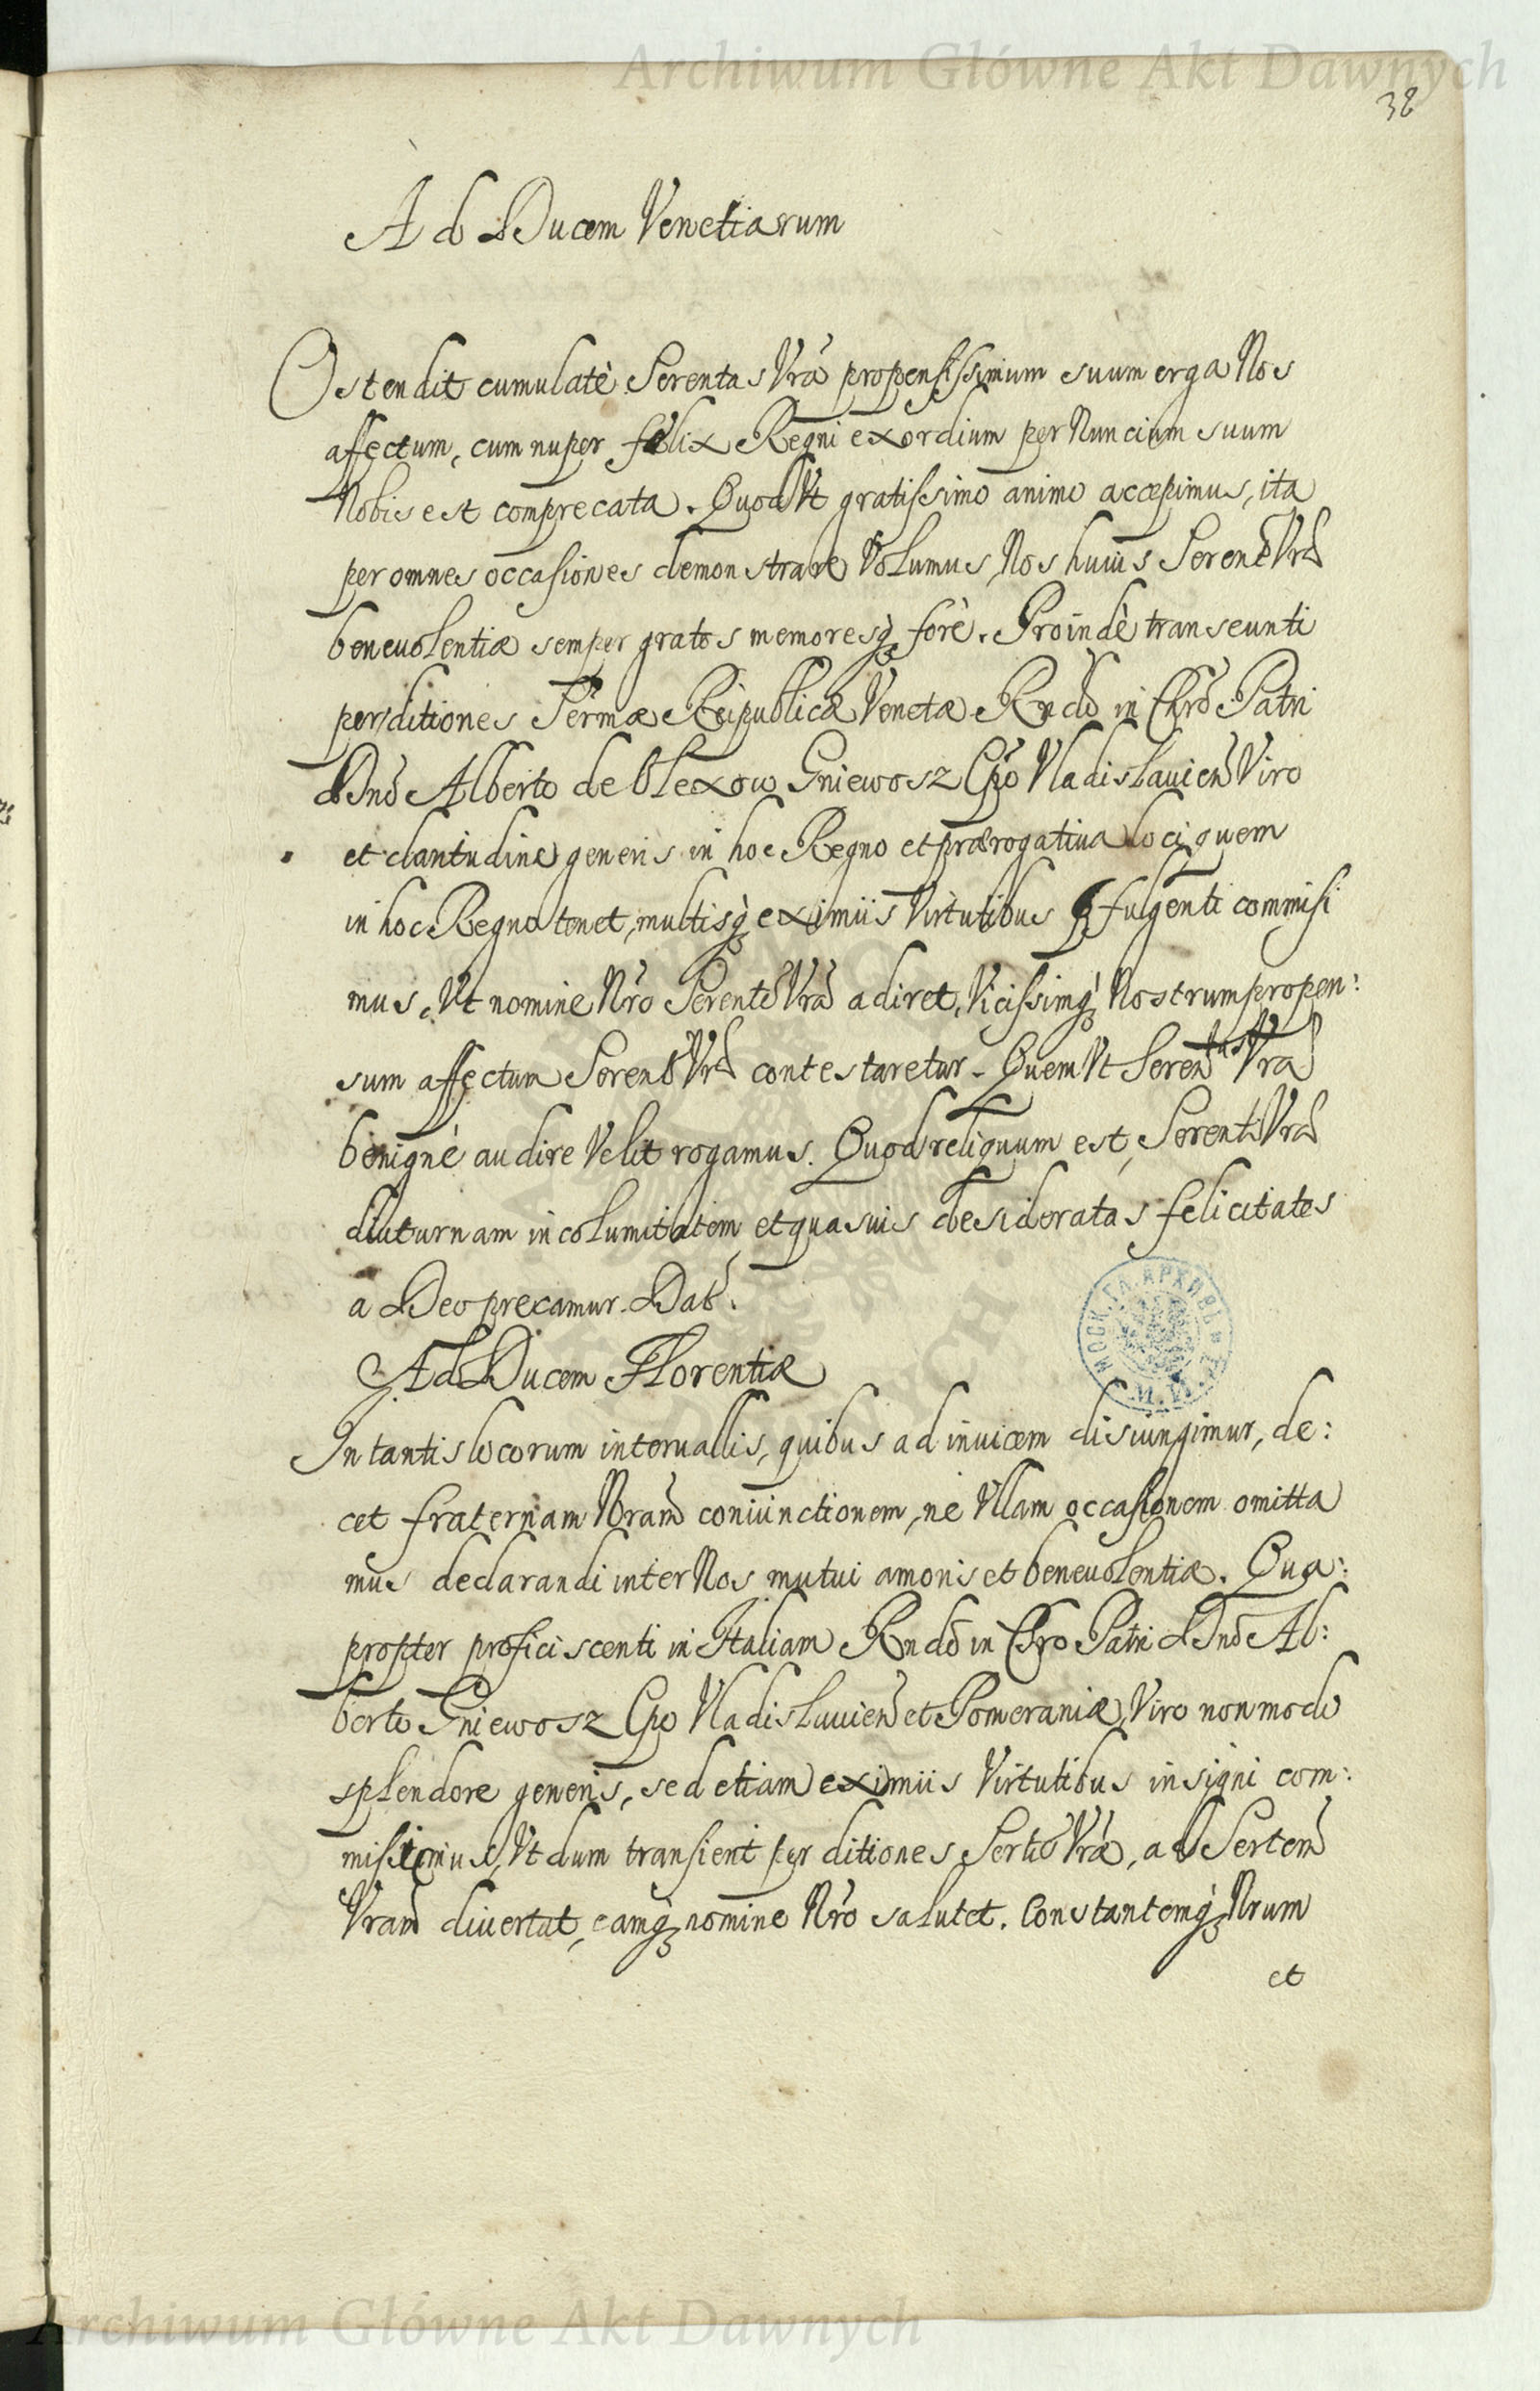 Archiwum Główne Akt Dawnych
38
Ad Ducem Venetiarum
Ostendit cumulatè Serentas Vrã propensissimum suum erga Nos
affectum, cum nuper felix Regni exordium per Nuncium suum
Nobis est comprecata. Quod Vt gratissimo animo accepimus, ita
per omnes occasiones demonstrare Volumus, Nos huius Serentis Vrã
beneuolentiæ semper gratos memoresq; forè. Proindè transeunti
per ditiones Sermæ Reipublicæ Venetæ Rndo in Chrõ Patri
Dnõ Alberto de Olexow Gniewosz Epõ Vladislauien Viro
et claritudine generis in hoc Regno et prærogatiua loci quem
in hoc Regno tenet, multisq; eximiis Virtutibus fulgenti commisi
mus, Vt nomine Nrõ Serentẽ Vrã adiret, Vicissimq; Nostrum propen:
sum affectum Serenti Vrã contestaretur. Quem Vt Serentas Vra
benignè audire Velit rogamus. Quod reliquum est, Serenti Vrã
diuturnam incolumitatem, et quasuis desideratas felicitates
a Deo precamur. Dat.
Ad Ducem Florentiæ
In tantis locorum interuallis, quibus ad inuicem disiungimur, de:
cet fraternam Nram coniunctionem, nè Vllam occasionem omitta
mus declarandi inter Nos mutui amoris et beneuolentiæ. Qua:
propter proficiscenti in Italiam Rndõ in Chro Patri Dnõ Al:
berto Gniewosz Epo Vladislauien et Pomeraniæ, Viro non modo
splendore generis, sed etiam eximiis Virtutibus insigni com:
misimus, Vt dum transient per ditiones Sertis Vrã, ad Sertem
Vram diuertat, eamq; nomine Nrõ salutet. Constantemq; Nrum
et
МОСК. ГЛ. АРХИВЪ
Archiwum Główne Akt Dawnych